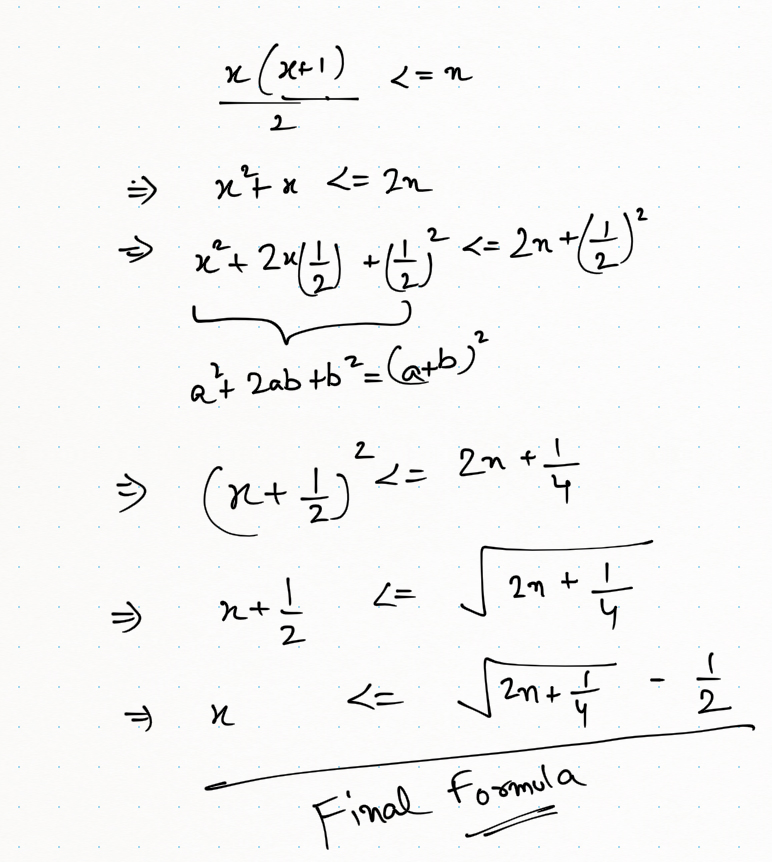 x(x+1)/2 <= n
⇒ x²+ x <= 2n
⇒ x²+ 2x(1/2) +(1/2)² <= 2n+(1/2)²
a²+ 2ab+b²=(a+b)²
⇒ (x+ 1/2)² <= 2n + 1/4
⇒ x+ 1/2 <= √(2n + 1/4)
⇒ x <= √(2n+ 1/4) - 1/2
Final Formula